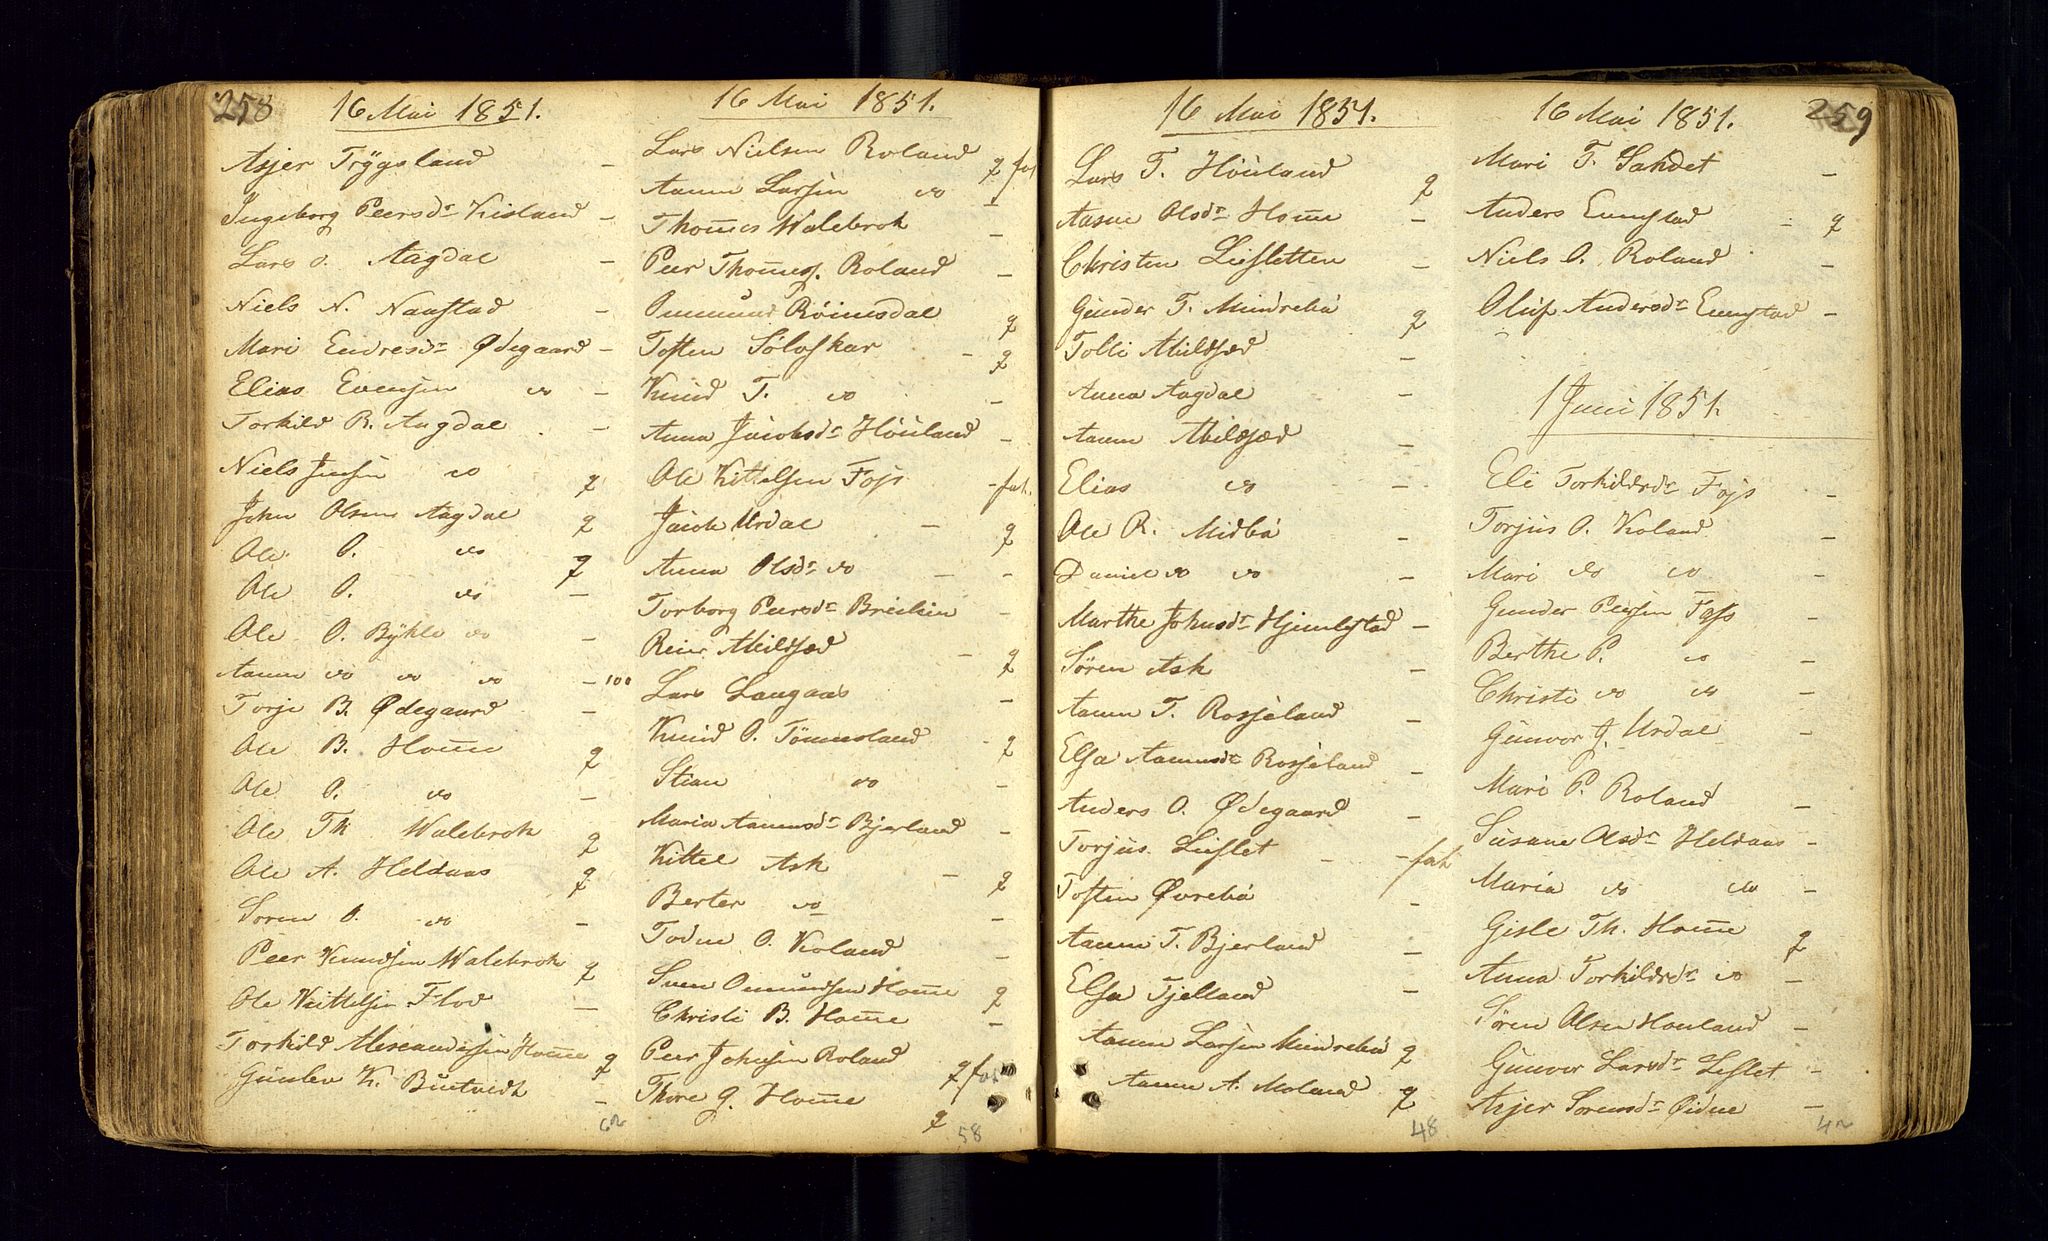 258
16 Mai 1851.
Asjer Trygsland -
Ingeborg Peersdr Kisland -
Lars O. Aagdal -
Niels N. Naustad -
Mari Endresdr Ødegaard -
Elias Evensen do -
Torkild R. Augdal -
Niels Jensen do q
John Olsen Aagdal q
Ole O. do q
Ole O. do -
Ole O. Bÿkle do -
Aanen do do do - 100
Torje B. Ødegaard -
Ole B. Home q
Ole O. do -
Ole Th Walebrok q
Ole A. Heldaas q
Soren O. do -
Peer Knudsen Walebrok q
Ole Kittelsen Flod -
Torkild Alexandersen Home q
Gunlev K. -
62
16 Mai 1851.
Lars Nielsen Roland q fat
Aanen Larsen do -
Thomes Walebrok -
Peer Thomes. Roland -
Ommund Röinsdal q
Tosten Sóloskar - q
Knud T. do -
Anna Jacobsdr Höiland -
Ole Kittelsen Fojs - fat.
Jacob Urdal - q
Anna Olsdr do - -
Torborg Peersdr Breilien -
Reier Abildsæd - q
Lars Langaas -
Knud O. Tönnesland - q
Stian do -
Maria Aanensdr Bjerland -
Kittel Ask - q
Berter do -
Todne O. Koland -
Sven Ommundsen Home q
Christi B. Home -
Peer Johnsen Roland q fat
Thore G. Home q
58
16 Mai 1851.
Lars T. Höiland q
Aasne Olsdr Home -
Christen Lifsletten -
Gunder T. Mindrebó q
Tolli Abildsæd -
Anna Aagdal -
Aanen Abildsæd -
Elias do -
Ole R. Midbó -
Daniel do do -
Marthe Johnsdr Hjemlystad -
Sören Ask -
Aanen T. Rosseland -
Elsa Aanensdr Rosseland -
Anders O. Ødegaard -
Torjus Liflet - - fat
Tosten Øvrebó -
Aanen T. Bjerland -
Elsa Fjelland -
Aanen Larsen Mindrebó q
Aanen A. Moland q
48
259
16 Mai 1851.
Mari T. Sandet -
Anders Eunstad - q
Niels O. Roland -
Oluf Andersdr Eunstad -
1 Juni 1851.
Eli Torkildsdr Fojs -
Torjus O. Koland -
Mari do do -
Gunder Peersen Fojs -
Berthe P. do -
Christi do do -
Gunvor J. Urdal -
Mari P. Roland -
Susane Olsdr Heldaas -
Maria do do -
Gisle Th. Home q
Anna Torkildsdr do -
Sören Olsen Houland -
Gunvor Larsdr Leflet -
Asjer Sorensdr Øidne -
42